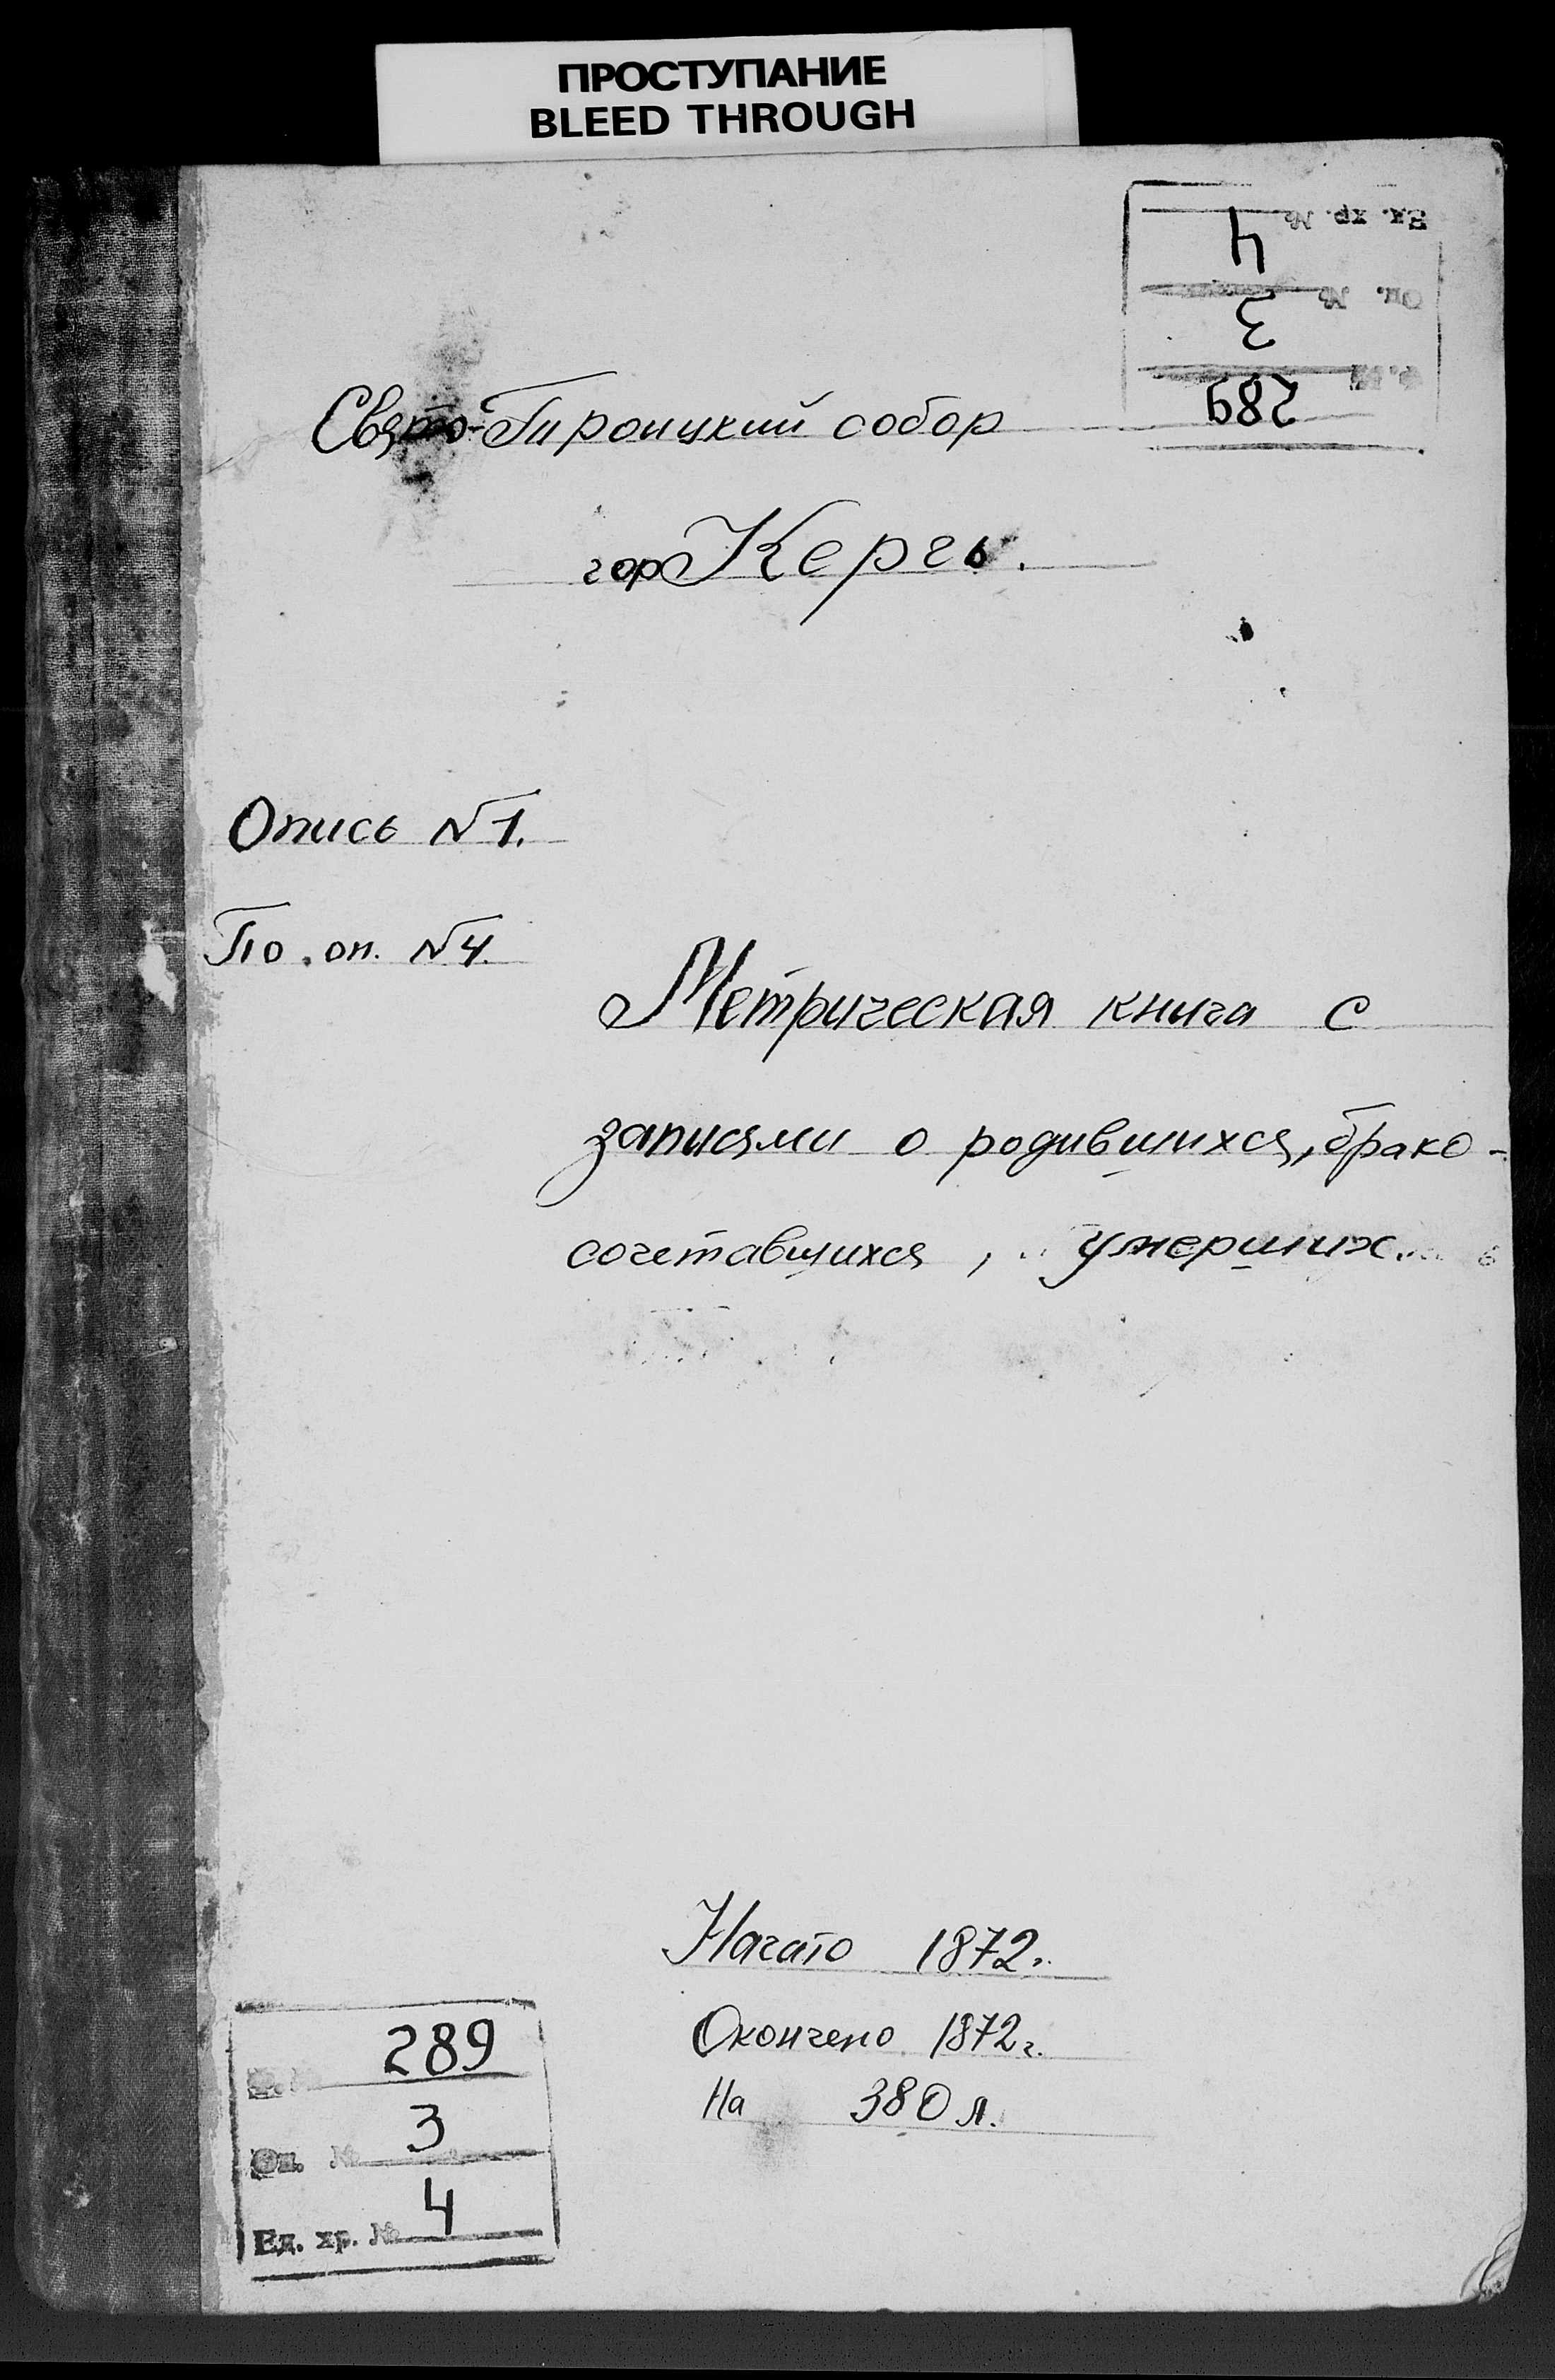 ПРОСТУПАНИЕ
BLEED THROUGH
Ед. хр. № 4
Оп. № 3
289
Свято-Троицкий собор
гор Керчь.
Опись №1.
По. оп. №4.
Метрическая книга с
записями о родившихся, брако-
сочетавшихся, умерших.
Начато 1872г.
Окончено 1872г.
На 380 л.
289
Оп. № 3
Ед. хр. № 4